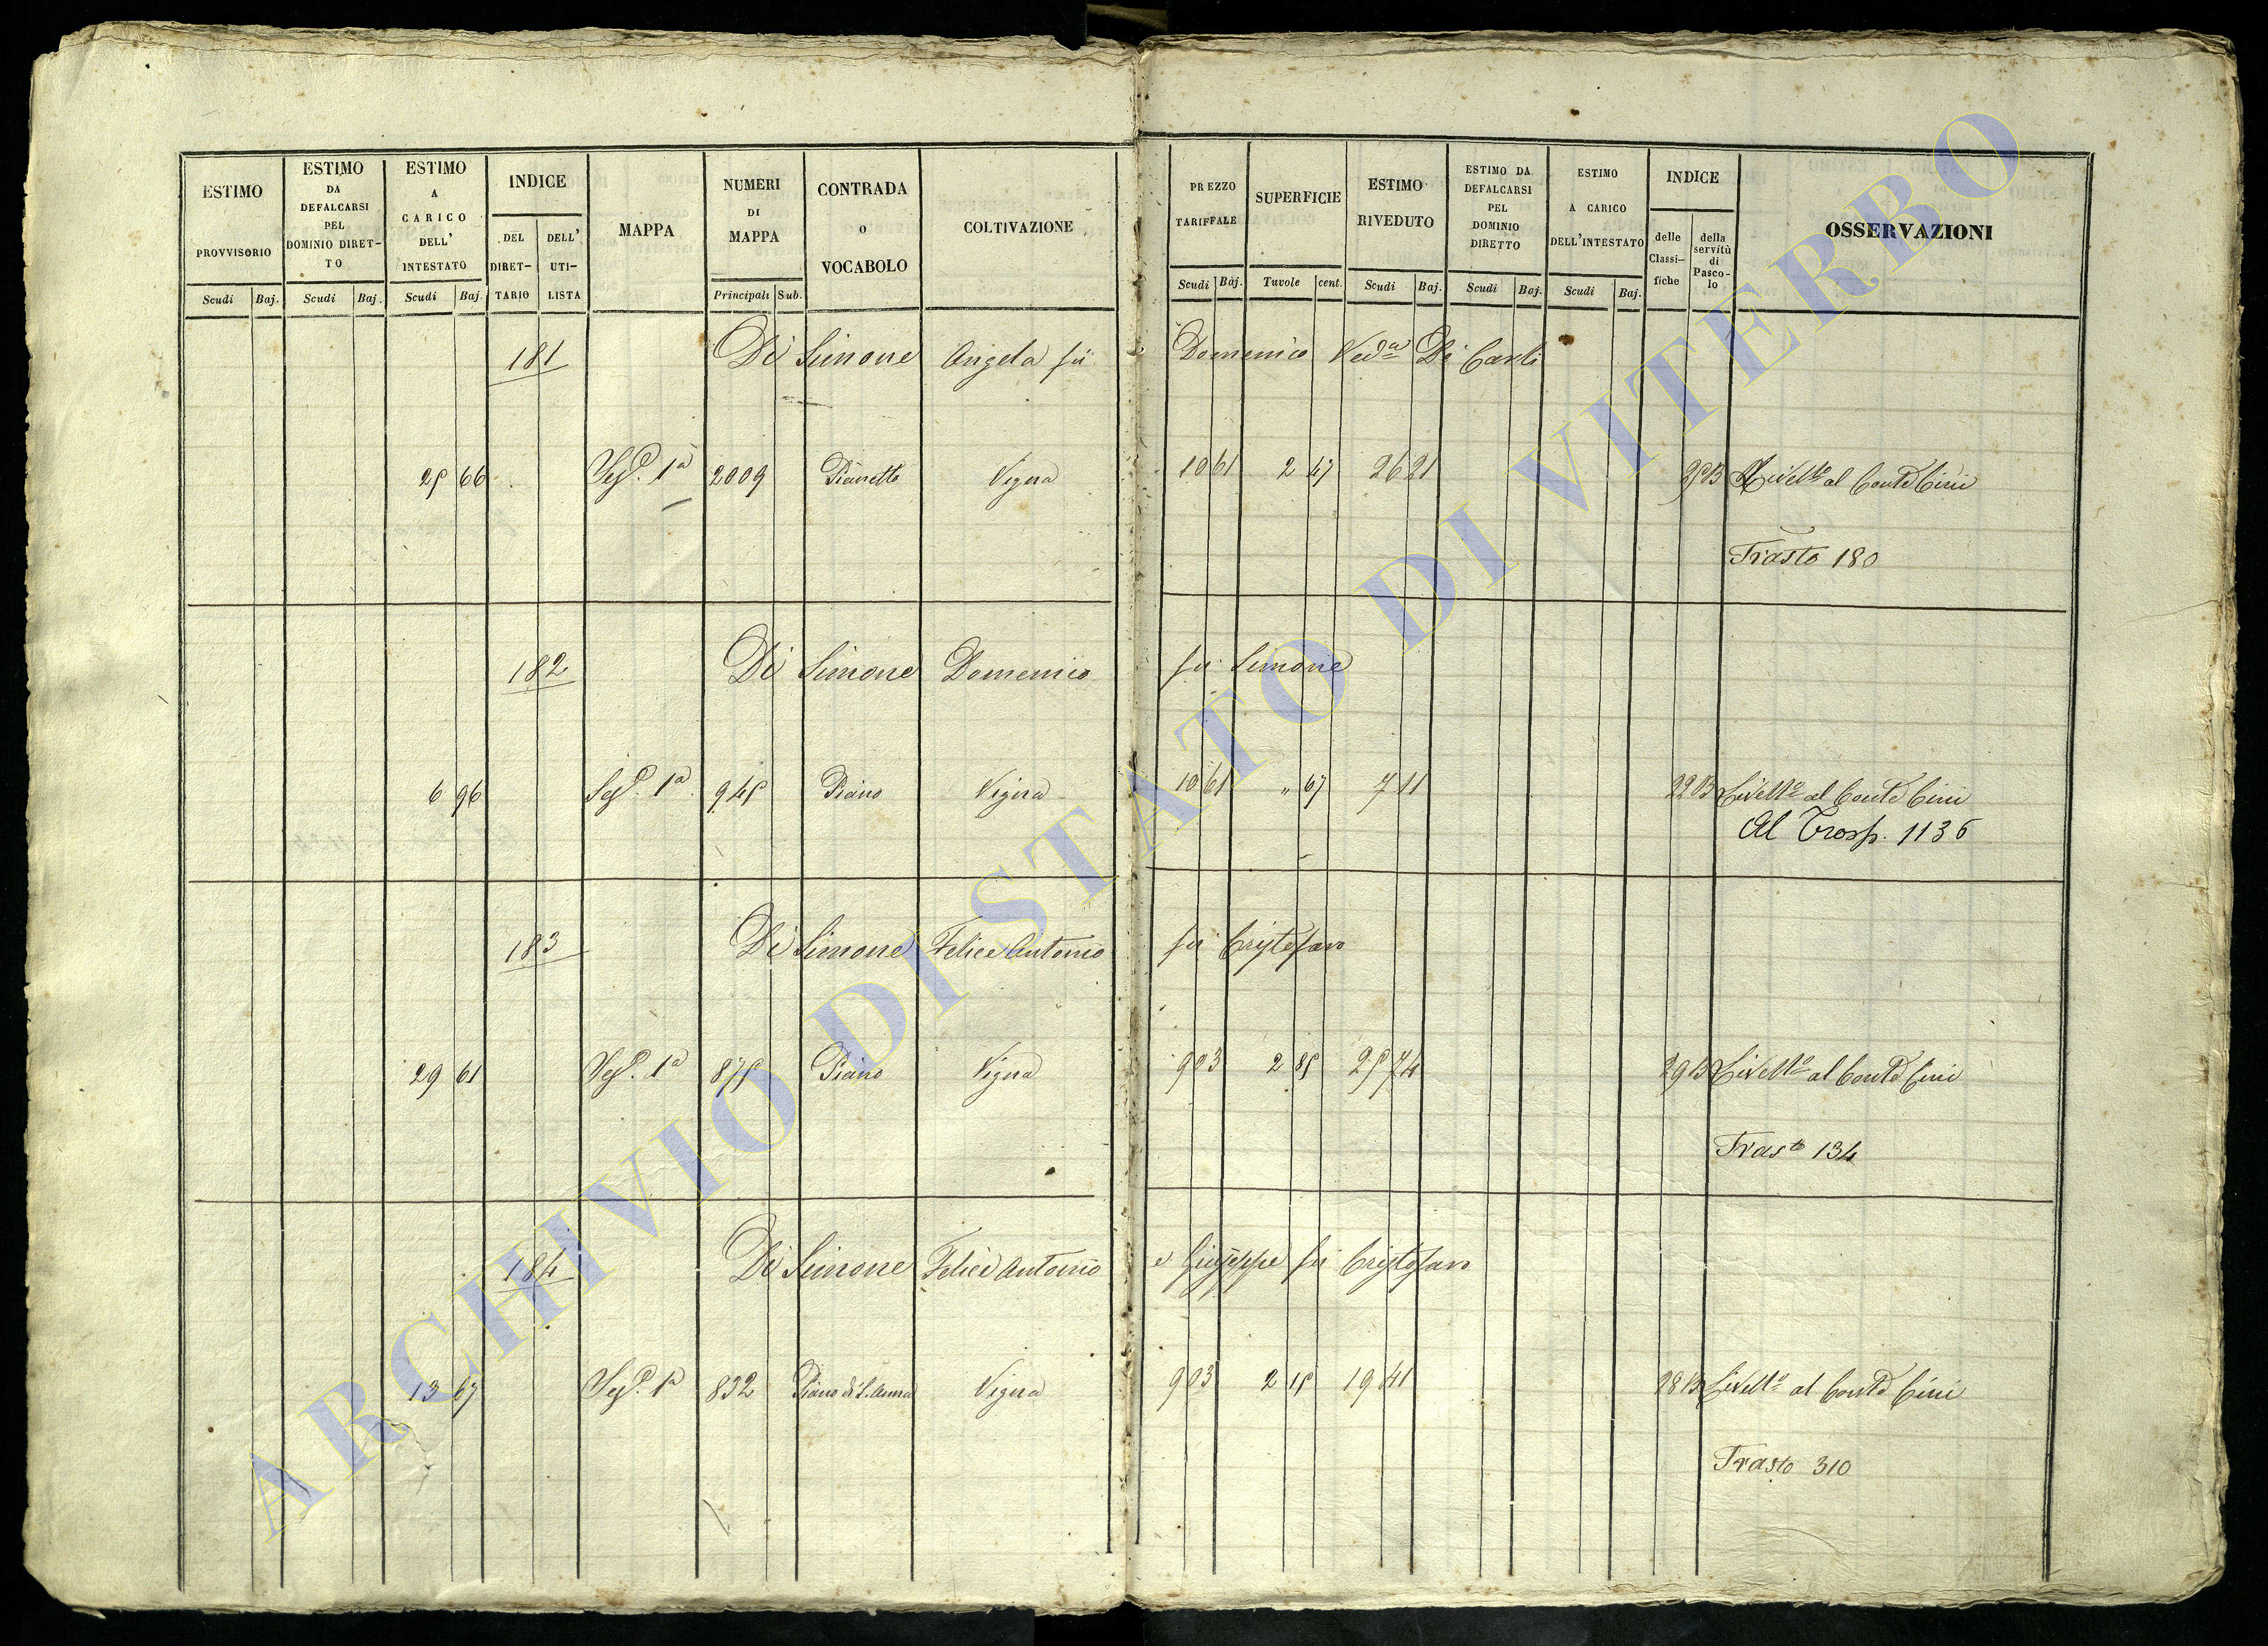 ESTIMO PROVVISORIO Scudi Baj.
ESTIMO DA DEFALCARSI PEL DOMINIO DIRET- TO Scudi Baj.
ESTIMO A CARICO DELL' INTESTATO Scudi Baj.
INDICE DEL DIRET- TARIO DELL' UTI- LISTA
MAPPA
NUMERI DI MAPPA Principali Sub.
CONTRADA O VOCABOLO
COLTIVAZIONE
PREZZO TARIFFALE Scudi Baj.
SUPERFICIE Tavole cent.
ESTIMO RIVEDUTO Scudi Baj.
ESTIMO DA DEFALCARSI PEL DOMINIO DIRETTO Scudi Baj.
ESTIMO A CARICO DELL'INTESTATO Scudi Baj.
INDICE delle Classi- fiche della servitù di Pasco- lo
OSSERVAZIONI
181 Di Simone Angela fu Domenico Ved.a Di Carli
25 66 1a 2009 Pianetto Vigna 10 61 2 47 26 21 Livello al Conte Cini
Trasto 180
182 Di Simone Domenico fu Simone
6 96 1a 945 Piano Vigna 10 61 " 67 7 11 Livello al Conte Cini
Al Trasp. 1136
183 Di Simone Felice Antonio fu Cristofaro
29 61 1a 875 Piano Vigna 9 03 2 85 25 74 Livello al Conte Cini
Trasto 134
184 Di Simone Felice Antonio e Giuseppe fu Cristofaro
13 67 1a 832 Piano di S. Anna Vigna 9 03 2 15 19 41 Livello al Conte Cini
Trasto 310
ARCHIVIO DI STATO DI VITERBO